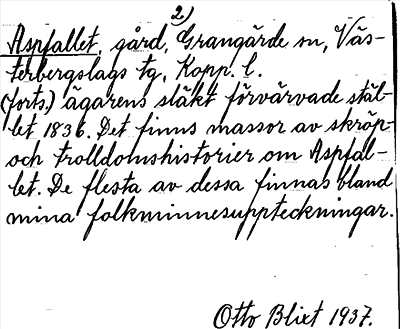 2)
Aspfallet, gård, Grangärde sn, Väs-
terbergslags tg, Kopp. l.
(forts.) ägarens släkt förvärvade stäl-
let 1836. Det finns massor av skröp-
och trolldomshistorier om Aspfal-
let. De flesta av dessa finnas bland
mina folkminnesuppteckningar.
Otto Blixt 1937.